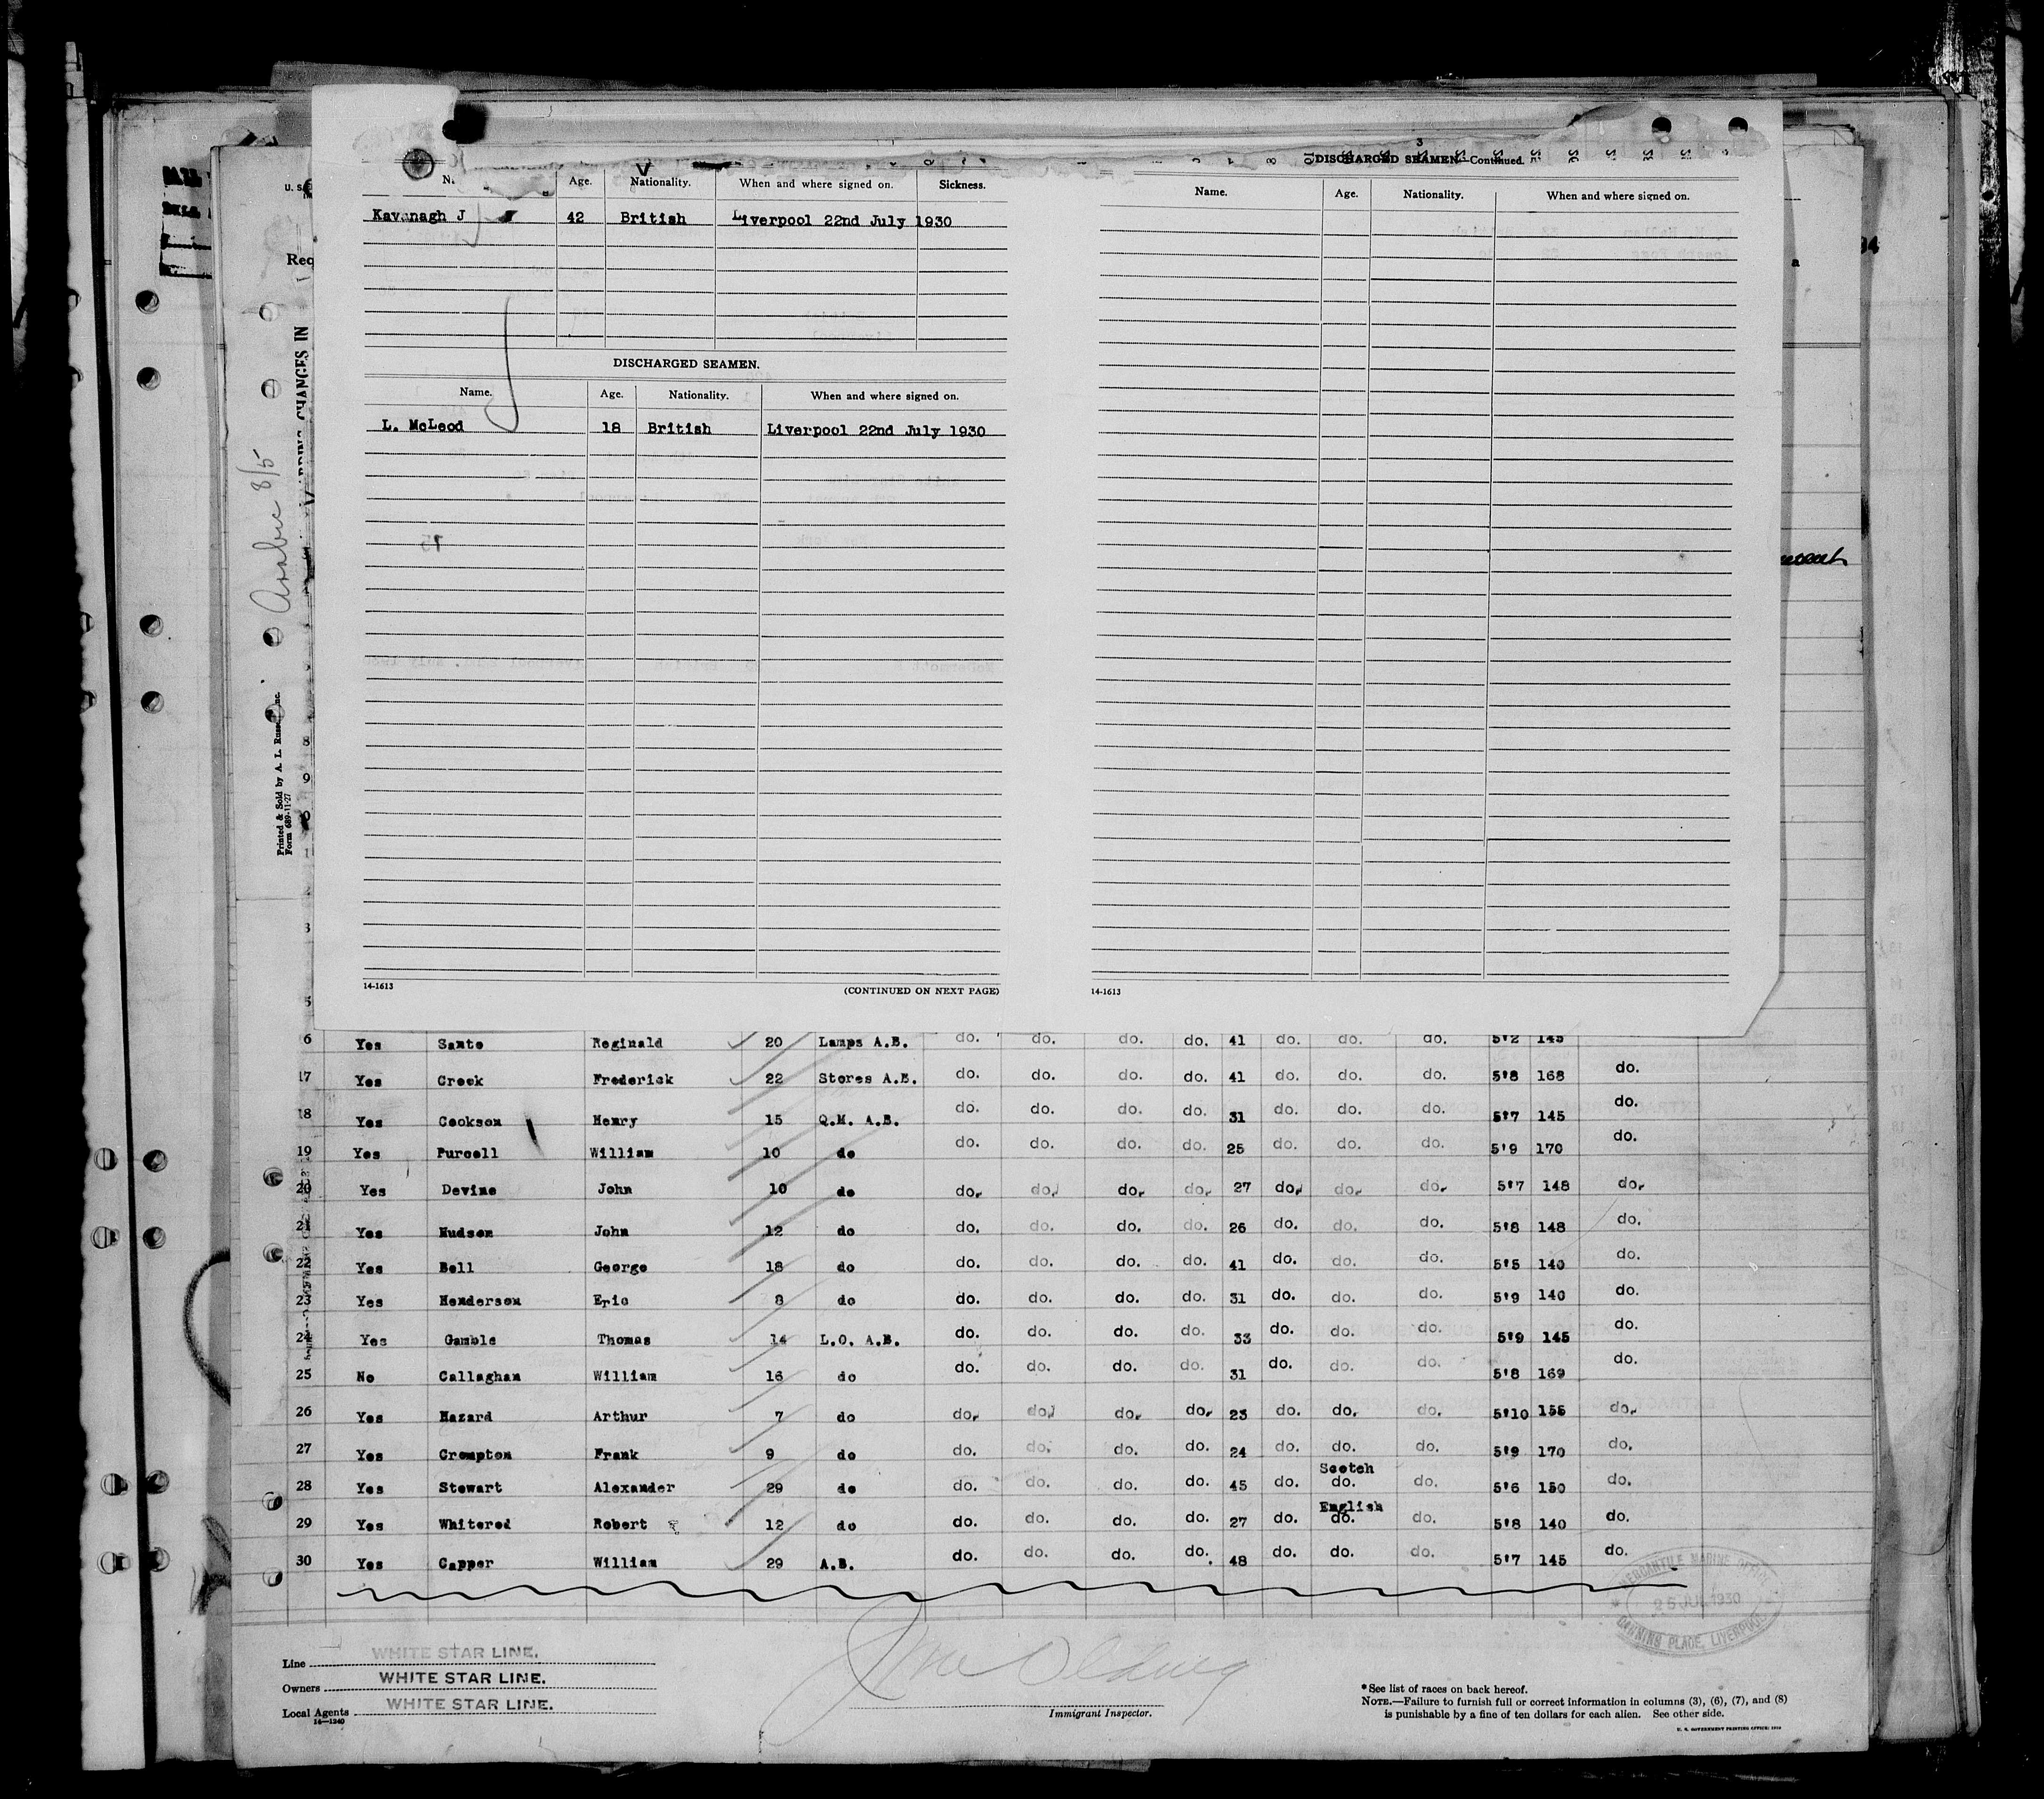 3
DISCHARGED SEAMEN—Continued.
Age. Nationality. When and where signed on. Sickness.
Kavanagh J 42 British Liverpool 22nd July 1930
DISCHARGED SEAMEN.
Name. Age. Nationality. When and where signed on.
L. McLeod 18 British Liverpool 22nd July 1930
14-1613
(CONTINUED ON NEXT PAGE)
Name. Age. Nationality. When and where signed on.
14-1613
Arabic 8/5
CHANGES IN
Printed & Sold by A. L.
Form 689-11-27
6 Yes Sante Reginald 20 Lamps A.B. do. do. do. do. 41 do. do. do. 5'2 145
17 Yes Crook Frederick 22 Stores A.B. do. do. do. do. 41 do. do. do. 5'8 168 do.
18 Yes Cookson Henry 15 Q.M. A.B. do. do. do. do. 31 do. do. do. 5'7 145 do.
19 Yes Purcell William 10 do do. do. do. do. 25 do. do. do. 5'9 170 do.
20 Yes Devine John 10 do do. do. do. do. 27 do. do. do. 5'7 148 do.
21 Yes Hudson John 12 do do. do. do. do. 26 do. do. do. 5'8 148 do.
22 Yes Bell George 18 do do. do. do. do. 41 do. do. do. 5'5 140 do.
23 Yes Henderson Eric 8 do do. do. do. do. 31 do. do. do. 5'9 140 do.
24 Yes Gamble Thomas 14 L.O. A.B. do. do. do. do. 33 do. do. do. 5'9 145 do.
25 No Callaghan William 16 do do. do. do. do. 31 do. do. do. 5'8 169 do.
26 Yes Hazard Arthur 7 do do. do. do. do. 23 do. do. do. 5'10 155 do.
27 Yes Crompton Frank 9 do do. do. do. do. 24 do. do. do. 5'9 170 do.
Scotch
28 Yes Stewart Alexander 29 do do. do. do. do. 45 do. do. do. 5'6 150 do.
English
29 Yes Whitered Robert 12 do do. do. do. do. 27 do. do. do. 5'8 140 do.
30 Yes Capper William 29 A.B. do. do. do. do. 48 do. do. do. 5'7 145 do.
MERCANTILE MARINE OFFICE
25 JUL 1930
CANNING PLACE, LIVERPOOL
Line WHITE STAR LINE.
Owners WHITE STAR LINE.
Local Agents WHITE STAR LINE.
14—1240
Immigrant Inspector.
*See list of races on back hereof.
NOTE.—Failure to furnish full or correct information in columns (3), (6), (7), and (8)
is punishable by a fine of ten dollars for each alien. See other side.
U. S. GOVERNMENT PRINTING OFFICE: 1930